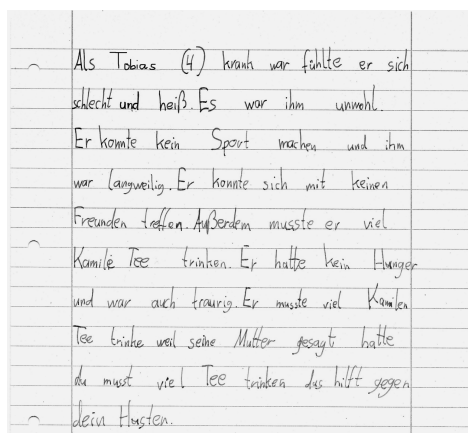 Als Tobias (4) krank war fühlte er sich
schlecht und heiß. Es war ihm unwohl.
Er konnte kein Sport machen und ihm
war langweilig. Er konnte sich mit keinen
Freunden treffen. Außerdem musste er viel
Kamile Tee trinken. Er hatte kein Hunger
und war auch traurig. Er musste viel Kamilen
Tee trinke weil seine Mutter gesagt hatte
du musst viel Tee trinken das hilft gegen
dein Husten.